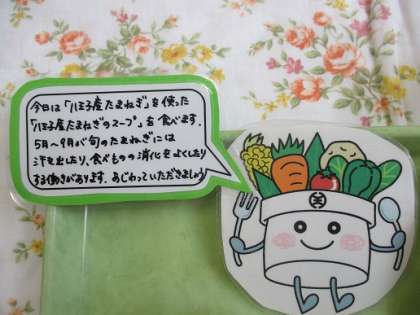 今日は「八王子産たまねぎ」を使った
「八王子産たまねぎのスープ」を食べます.
5月〜9月が旬のたまねぎには
汗を出したり、食べものの消化をよくしたり
する働きがあります. あじわっていただきましょう